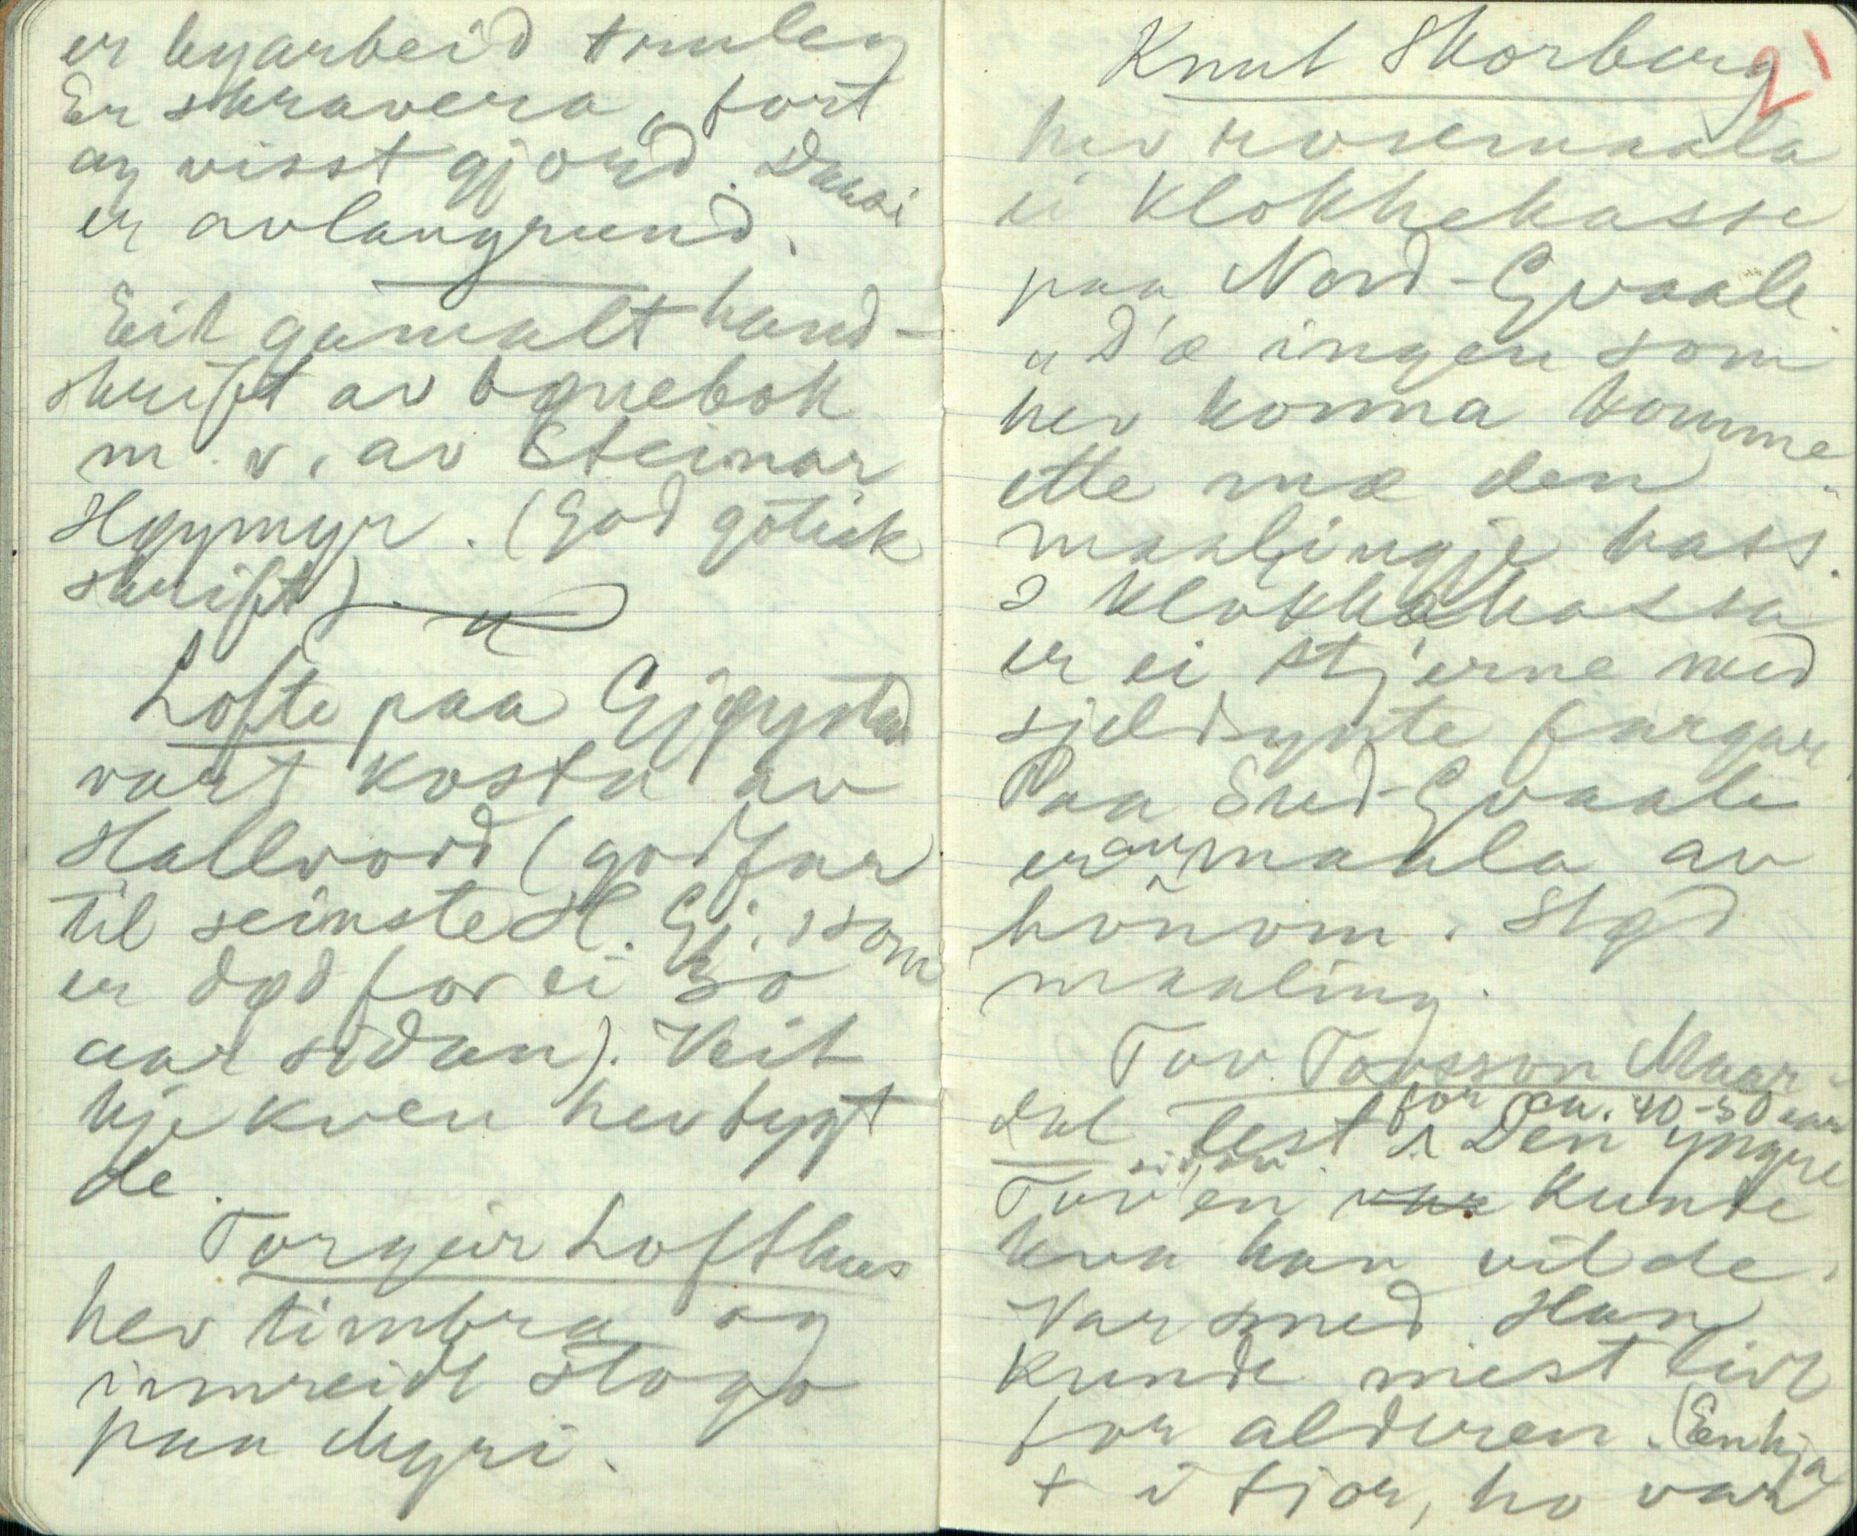 er byarbeid truleg
Er skravera, fort
og visst gjord. Daasi
er avlangrund.
Eit gamalt hand-
skrift av bønebok
m. v. av Steinar
Høymyr. (God gotisk
skrift).
Lofte paa Gjøystad
vart kosta av
Hallvord (godfar
til seinste H. Gj., som
er død for ei 30
aar sidan). Veit
kje kven hev bygt
de.
Torgeir Lofthus
hev timbra og
innreidt stogo
paa Myri.
21
Knut Skorberg
hev rosemaala
ei klokkekasse
paa Nord-Gvaale.
"D'æ ingen som
hev konna komme
ette mæ den
maalingje hass."
I klokkekassa
er ei stjerne med
sjeldsynte fargar.
Paa Sud-Gvaale
er au maala av
honom. Stød
maaling.
Tov Tovsson Maar-
dal lest for ca. 40-50 aar
sidan. Den yngre
Tov'en var kunde
kva han vilde.
Var smed. Han
kunde mest livt
for alderen. (Enkja
+ i fjor, ho var